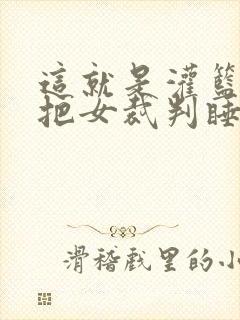 這就是灌籃
把女裁判睡
滑稽戲里的小